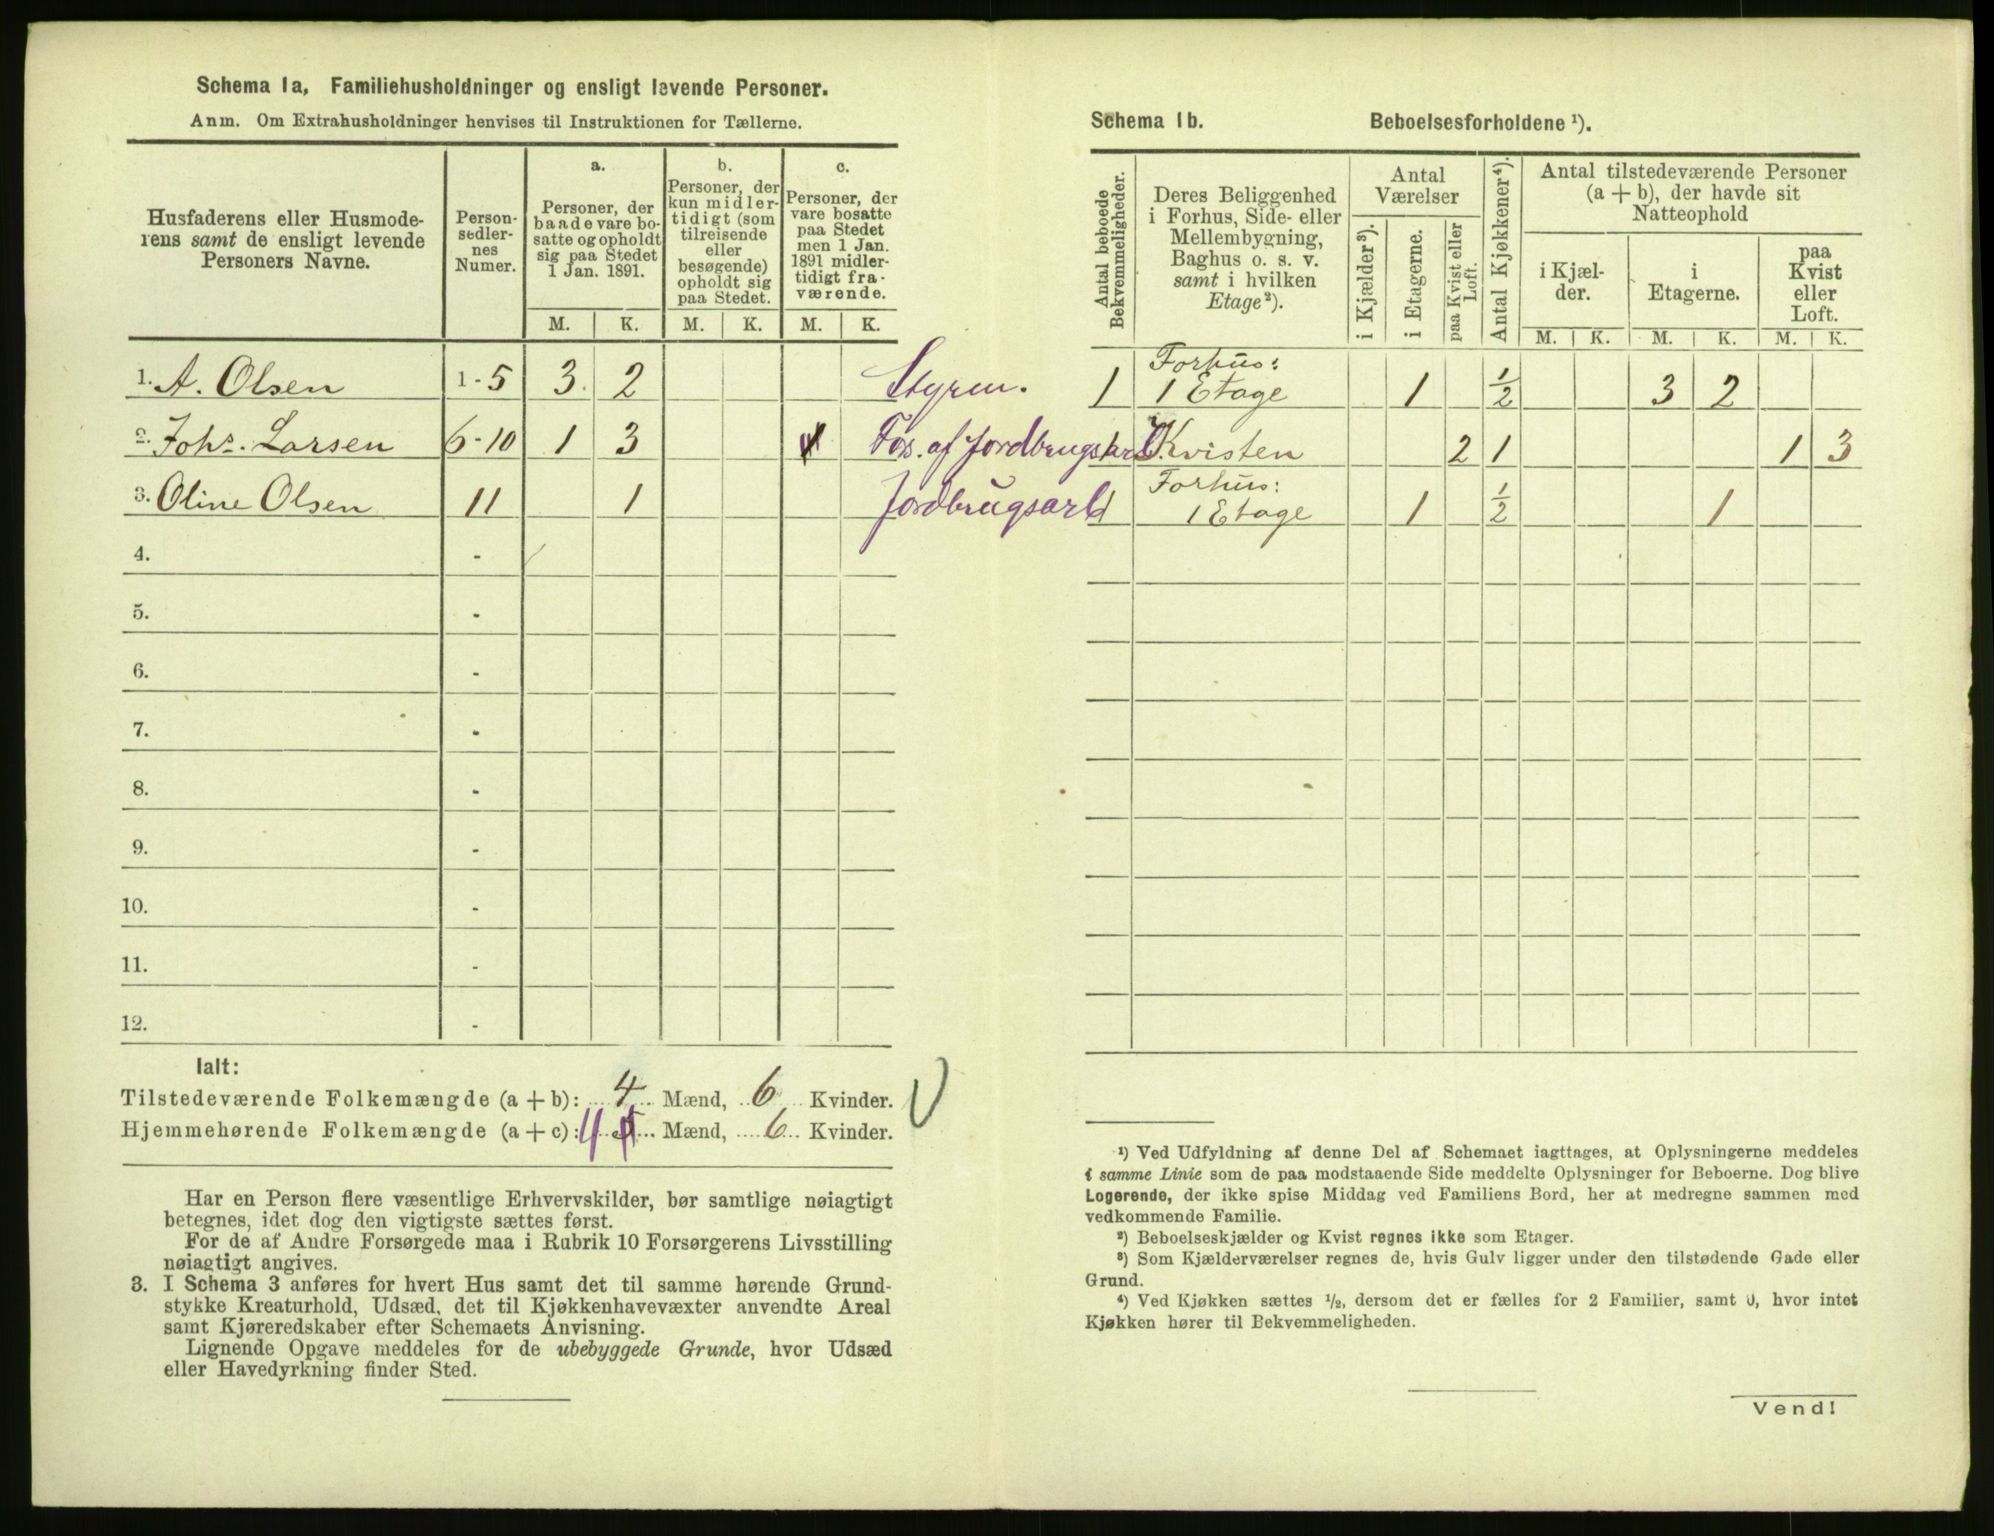 Schema 1a, Familiehusholdninger og ensligt levende Personer.
Anm. Om Extrahusholdninger henvises til Instruktionen for Tællerne.
Husfaderens eller Husmoderens samt de ensligt levende Personers Navne.
Personsedlernes Numer.
a.
Personer, der baade vare bosatte og opholdt sig paa Stedet 1 Jan. 1891.
b.
Personer, der kun midlertidigt (som tilreisende eller besøgende) opholdt sig paa Stedet.
c.
Personer, der vare bosatte paa Stedet men 1 Jan. 1891 midlertidigt fraværende.
M. K. M. K. M. K.
1. A. Olsen 1-5 3 2 Styrm.
2. Johs. Larsen 6-10 1 3 Fors. af Jordbrugsarb
3. Oline Olsen 11 1 Jordbrugsarb
4. -
5. -
6. -
7. -
8. -
9. -
10. -
11. -
12. -
Ialt:
Tilstedeværende Folkemængde (a + b): 4 Mænd, 6 Kvinder.
Hjemmehørende Folkemængde (a + c): 4 5 Mænd, 6 Kvinder.
Har en Person flere væsentlige Erhvervskilder, bør samtlige nøiagtigt
betegnes, idet dog den vigtigste sættes først.
For de af Andre Forsørgede maa i Rubrik 10 Forsørgerens Livsstilling
nøiagtigt angives.
3. I Schema 3 anføres for hvert Hus samt det til samme hørende Grund-
stykke Kreaturhold, Udsæd, det til Kjøkkenhavevæxter anvendte Areal
samt Kjøreredskaber efter Schemaets Anvisning.
Lignende Opgave meddeles for de ubebyggede Grunde, hvor Udsæd
eller Havedyrkning finder Sted.
Schema 1b. Beboelsesforholdene ¹).
Antal beboede Bekvemmeligheder.
Deres Beliggenhed i Forhus, Side- eller Mellembygning, Baghus o. s. v. samt i hvilken Etage ²).
Antal Værelser
i Kjælder ³).
i Etagerne.
paa Kvist eller Loft.
Antal Kjøkkener ⁴).
Antal tilstedeværende Personer (a + b), der havde sit Natteophold
i Kjælder.
i Etagerne.
paa Kvist eller Loft.
M. K. M. K. M. K.
Forhus:
1 1 Etage 1 ½ 3 2
1 Kvisten 2 1 1 3
Forhus:
1 1 Etage 1 ½ 1
¹) Ved Udfyldning af denne Del af Schemaet iagttages, at Oplysningerne meddeles
i samme Linie som de paa modstaaende Side meddelte Oplysninger for Beboerne. Dog blive
Logerende, der ikke spise Middag ved Familiens Bord, her at medregne sammen med
vedkommende Familie.
²) Beboelseskjælder og Kvist regnes ikke som Etager.
³) Som Kjælderværelser regnes de, hvis Gulv ligger under den tilstødende Gade eller
Grund.
⁴) Ved Kjøkken sættes ½, dersom det er fælles for 2 Familier, samt 0, hvor intet
Kjøkken hører til Bekvemmeligheden.
Vend!